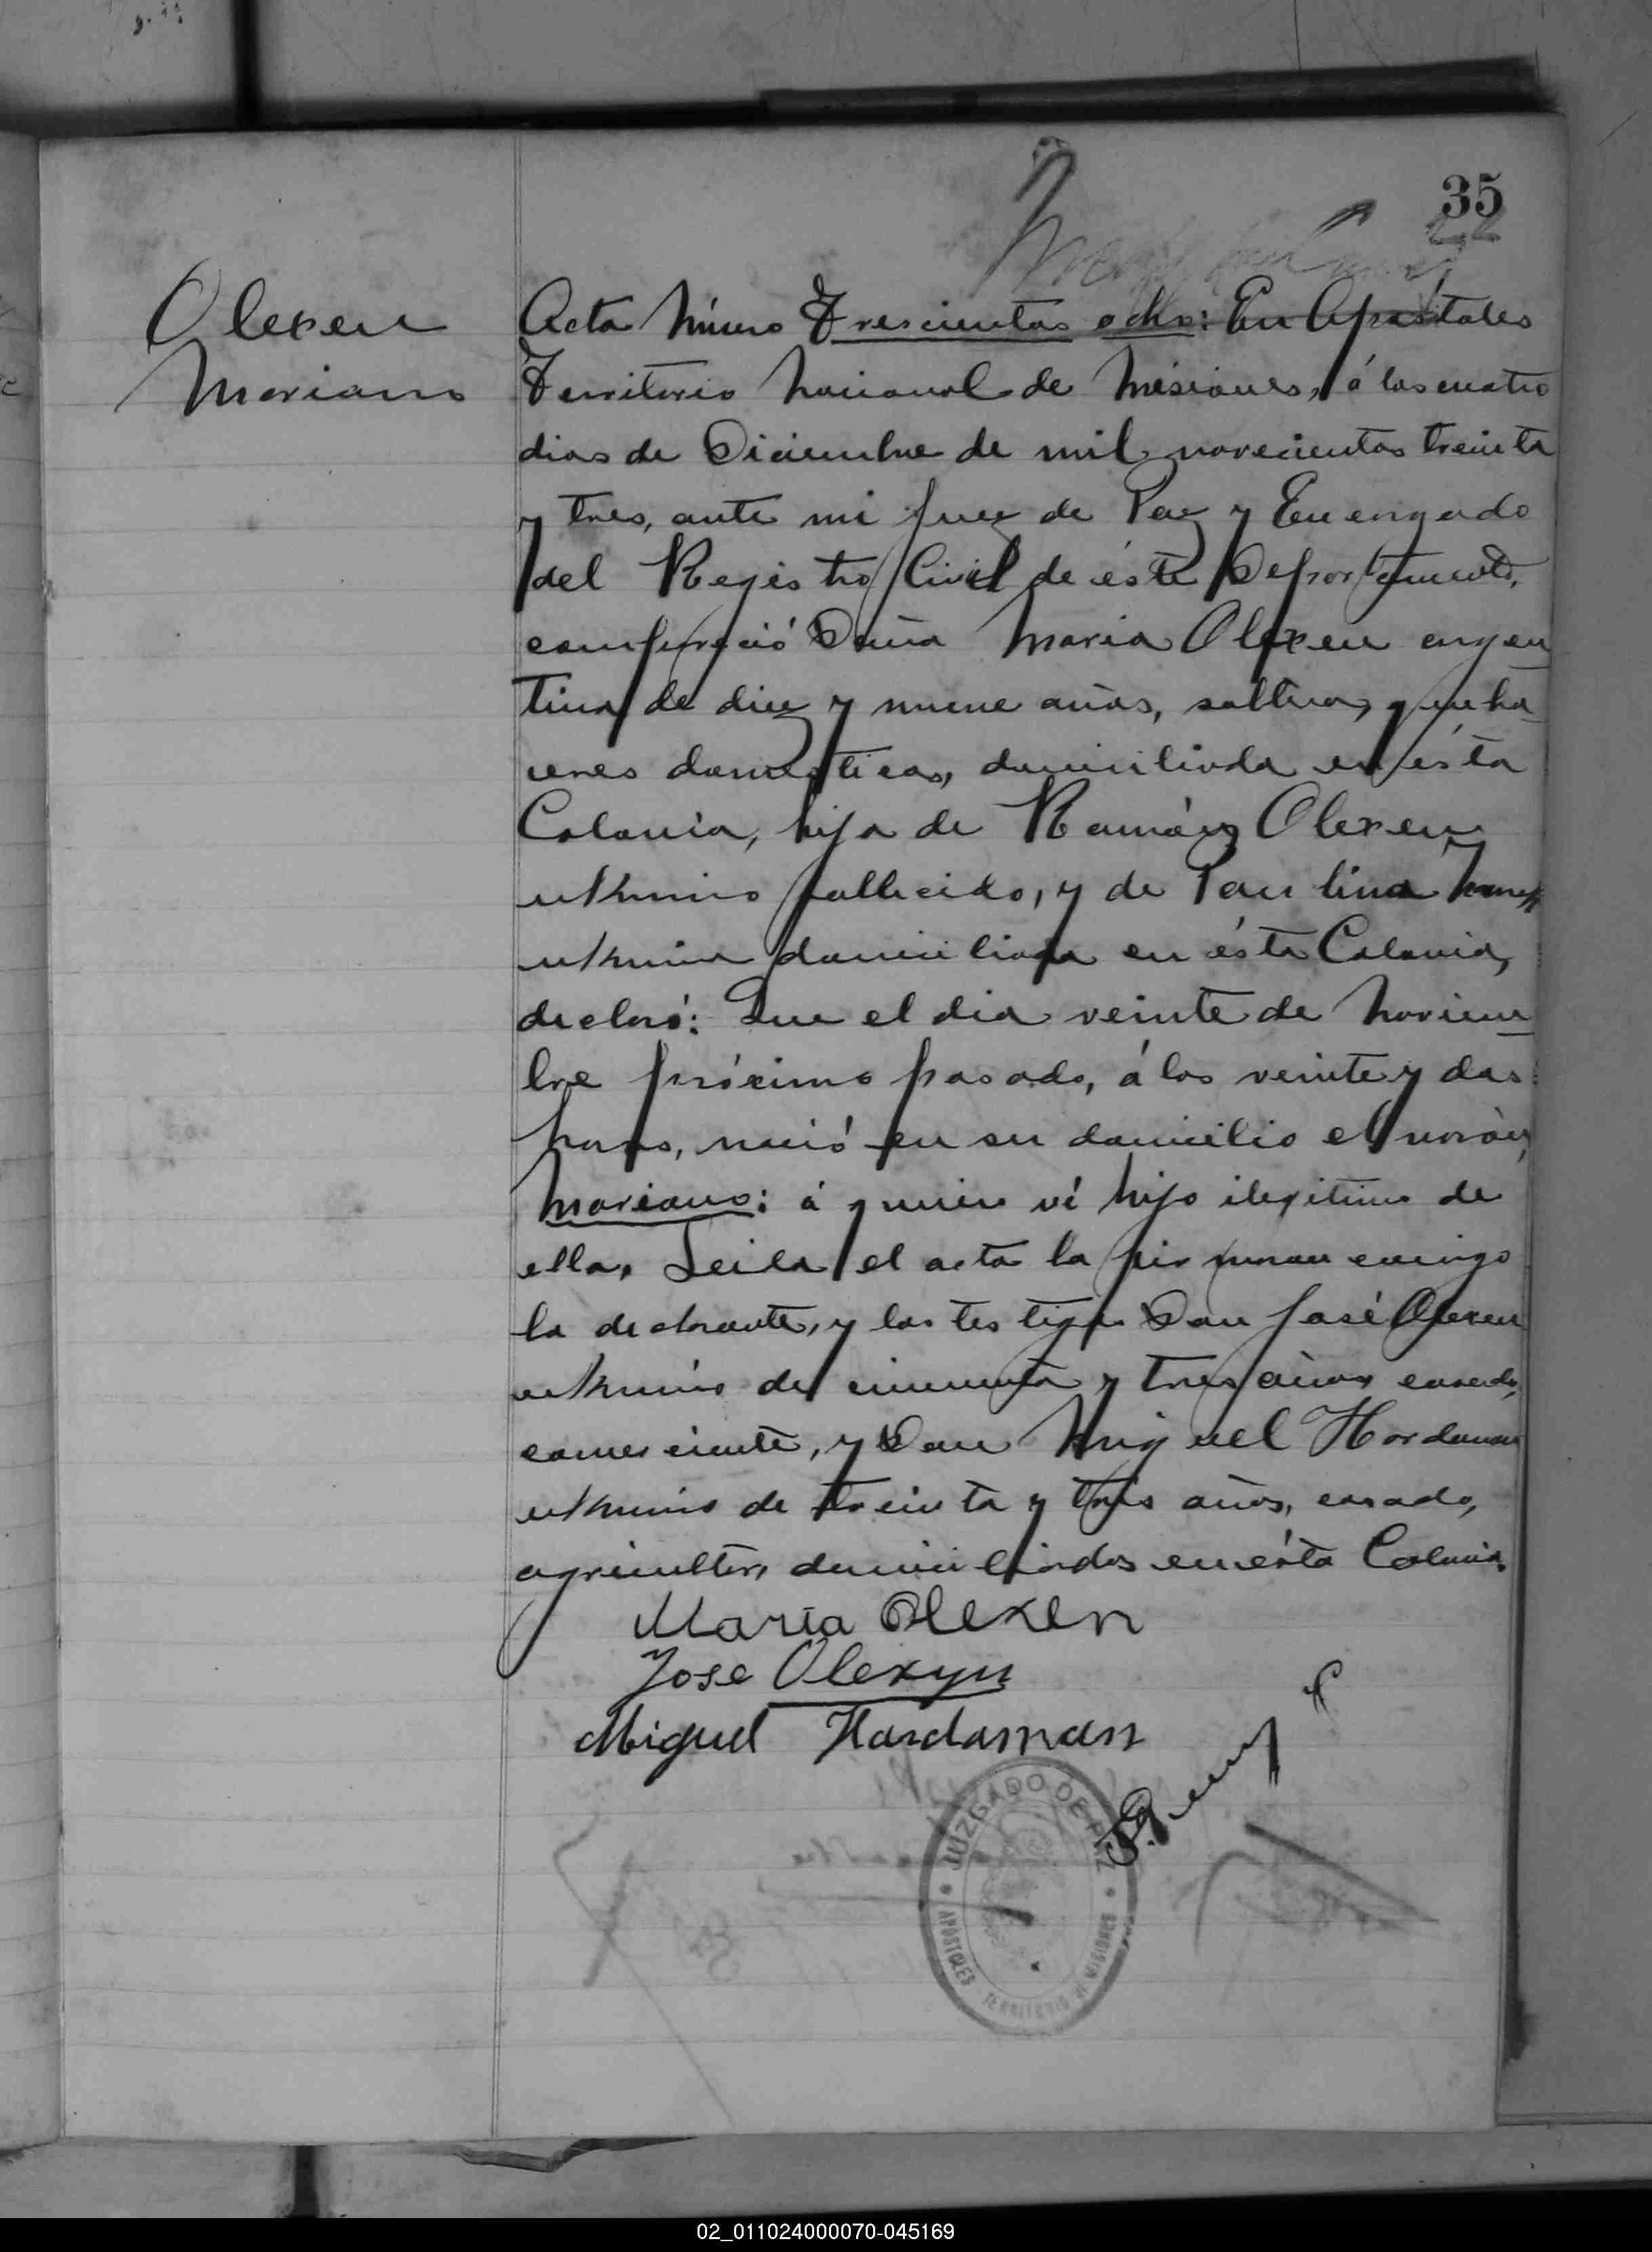 35
Olexen
Mariano
Acta Número Trescientos ocho: En Apóstoles
Territorio Nacional de Misiones, á los cuatro
dias de Diciembre de mil novecientos treinta
y tres, ante mi Juez de Paz y Encargado
del Registro Civil de éste Departamento,
compareció Doña Maria Olexen argen
tina de diez y nueve años, soltera, queha
ceres domesticos, domiciliada en ésta
Colonia, hija de Ramón Olexen
ukranio fallecido, y de Paulina
ukrania domiciliada en ésta Colonia,
declaró: Que el dia veinte de Noviem
bre próximo pasado, á las veinte y dos
horas, nació en su domicilio el varón,
Mariano: á quien ví hijo ilegitimo de
ella, Leida el acta la firmaron conmigo
la declarante, y los testigos Don José Olexen
ukranio de cincuenta y tres años, casado,
comerciante, y Don Miguel Hordaman
ukranio de treinta y tres años, casado,
agricultor, domiciliados en ésta Colonia.
Maria Olexen
Jose Olexyn
Miguel Hardaman
JUZGADO DE PAZ
APÓSTOLES TERRITORIO DE MISIONES
02_011024000070-045169